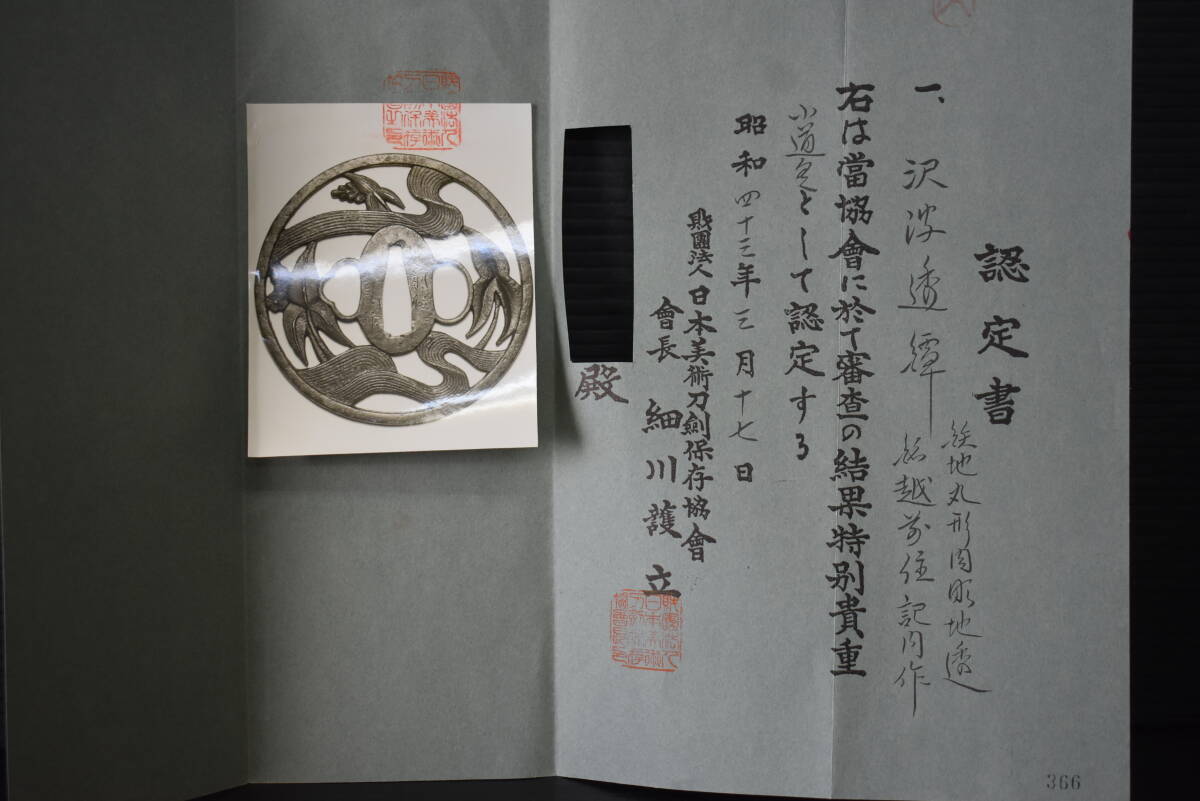 認定書
一、沢波透鐔
鉄地丸形肉彫地透
銘越前住記内作
右は當協會に於て審査の結果特別貴重
小道具として認定する
昭和四十三年三月十七日
財團法人日本美術刀劍保存協會
會長 細川護立
殿
366